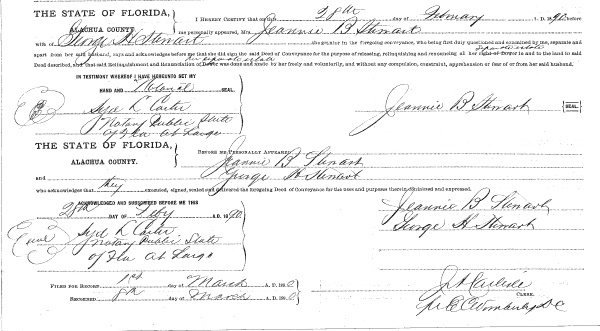 THE STATE OF FLORIDA,
ALACHUA COUNTY.
I HEREBY CERTIFY that on this 28th day of February A. D. 1890, before
me personally appeared, Mrs. Jeannie B Stewart
wife of George H Stewart the grantor in the foregoing conveyance, who being first duly questioned and examined by me, separate and
apart from her said husband, says and acknowledges before me that she did sign the said Deed of Conveyance for the purpose of releasing, relinquishing and renouncing all her right of Dower in and to the land in said
separate estate
Deed described, and that said Relinquishment and Renunciation of Dower was done and made by her freely and voluntarily, and without any compulsion, constraint, apprehension or fear of or from her said husband.
her separate estate
IN TESTIMONY WHEREOF I HAVE HEREUNTO SET MY
HAND AND Notarial SEAL.
Syd L Carter
Notary Public State
of Fla at Large
Jeannie B Stewart SEAL
THE STATE OF FLORIDA,
ALACHUA COUNTY.
BEFORE ME PERSONALLY APPEARED Jeannie B Stewart
and George H Stewart
who acknowledges that they executed, signed, sealed and delivered the foregoing Deed of Conveyance for the uses and purposes therein contained and expressed.
ACKNOWLEDGED AND SUBSCRIBED BEFORE ME THIS
28th DAY OF Feby A. D. 1890.
Syd L Carter
Notary Public State
of Fla at Large
Jeannie B Stewart
George H Stewart
FILED FOR RECORD 1st day of March A. D. 1890
RECORDED 8th day of March A. D. 1890
J A Carlisle
CLERK.
D C